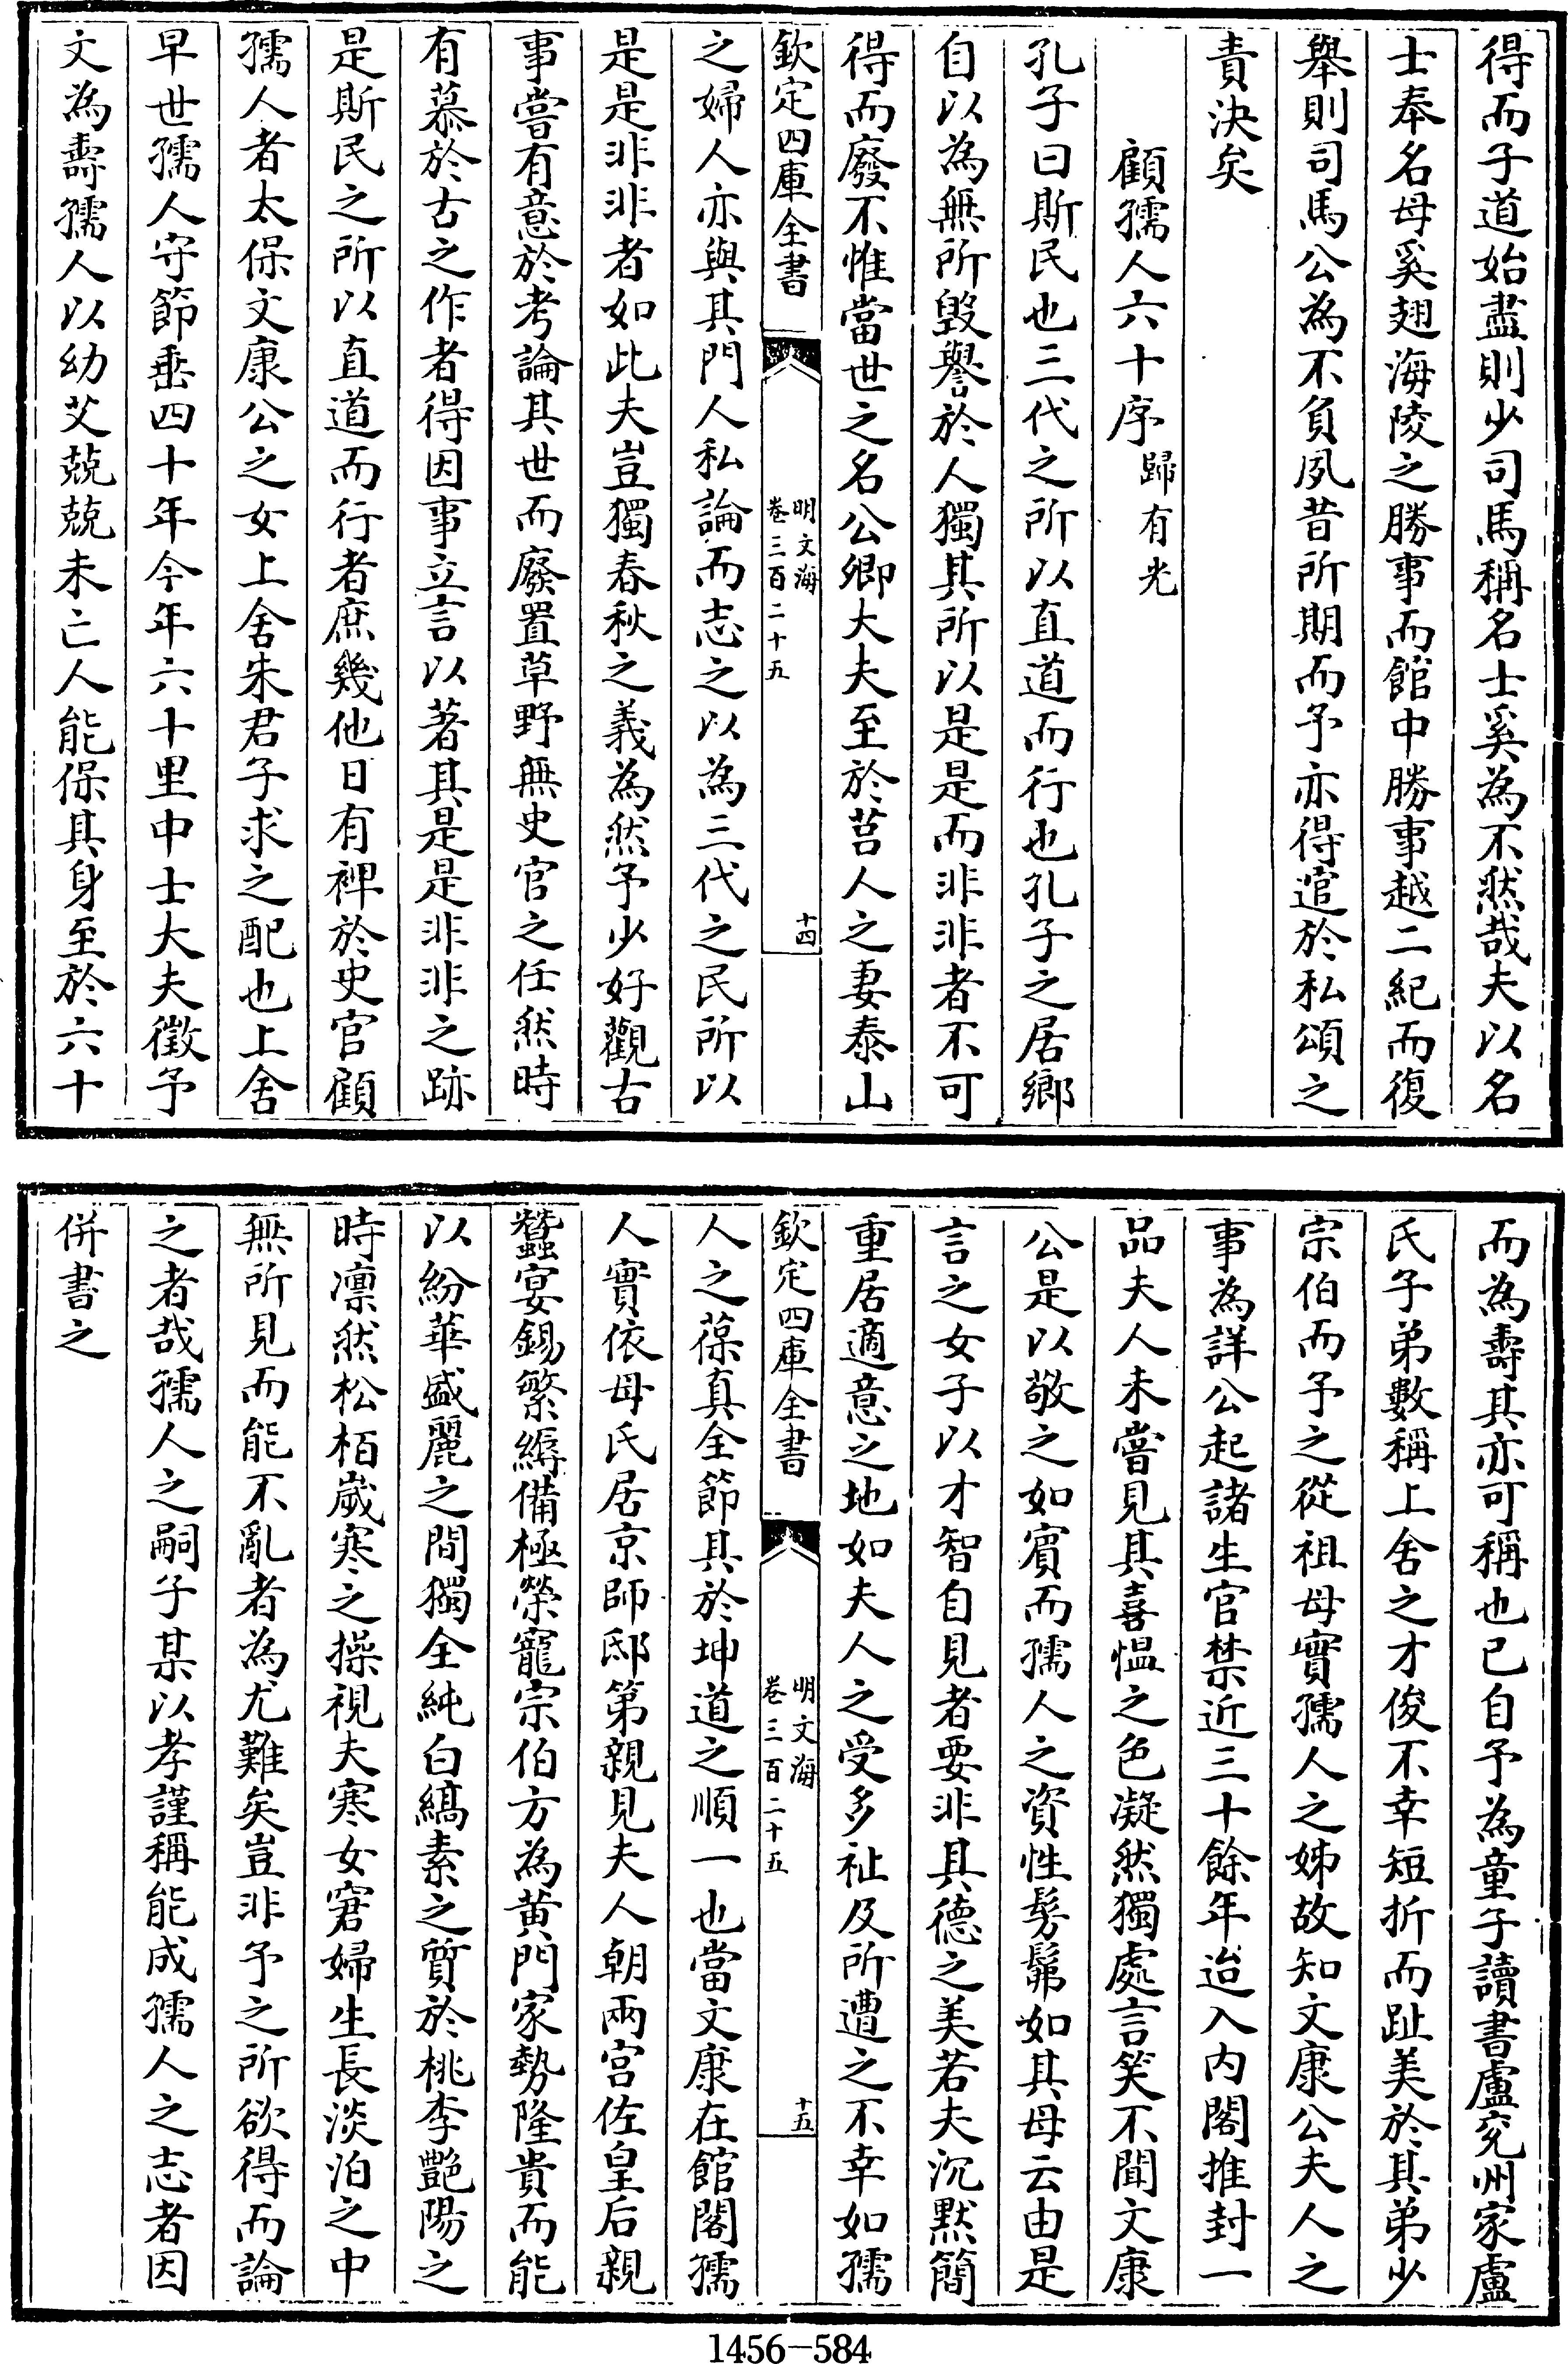 得而子道始盡則少司馬稱名士奚為不然哉夫以名
士奉名母奚翅海陵之勝事而館中勝事越二紀而復
舉則司馬公為不負夙昔所期而予亦得逭於私頌之
責決矣
顧孺人六十序歸有光
孔子曰斯民也三代之所以直道而行也孔子之居鄉
自以為無所毀譽於人獨其所以是是而非非者不可
得而廢不惟當世之名公卿大夫至於莒人之妻泰山
欽定四庫全書
明文海
卷三百二十五
十四
之婦人亦與其門人私論而志之以為三代之民所以
是是非非者如此夫豈獨春秋之義為然予少好觀古
事嘗有意於考論其世而廢置草野無史官之任然時
有慕於古之作者得因事立言以著其是是非非之跡
是斯民之所以直道而行者庶幾他日有裨於史官顧
孺人者太保文康公之女上舍朱君子求之配也上舍
早世孺人守節垂四十年今年六十里中士大夫徵予
文為壽孺人以幼艾兢兢未亡人能保其身至於六十
而為壽其亦可稱也已自予為童子讀書盧兗州家盧
氏子弟數稱上舍之才俊不幸短折而趾美於其弟少
宗伯而予之從祖母實孺人之姊故知文康公夫人之
事為詳公起諸生官禁近三十餘年迨入內閣推封一
品夫人未嘗見其喜慍之色凝然獨處言笑不聞文康
公是以敬之如賓而孺人之資性髣髴如其母云由是
言之女子以才智自見者要非其德之美若夫沉默簡
重居適意之地如夫人之受多祉及所遭之不幸如孺
欽定四庫全書
明文海
卷三百二十五
十五
人之葆真全節其於坤道之順一也當文康在館閣孺
人實依母氏居京師邸第親見夫人朝兩宮佐皇后親
蠶宴錫繁縟備極榮寵宗伯方為黃門家勢隆貴而能
以紛華盛麗之間獨全純白縞素之質於桃李艷陽之
時凜然松栢歲寒之操視夫寒女窘婦生長淡泊之中
無所見而能不亂者為尤難矣豈非予之所欲得而論
之者哉孺人之嗣子某以孝謹稱能成孺人之志者因
併書之
1456-584